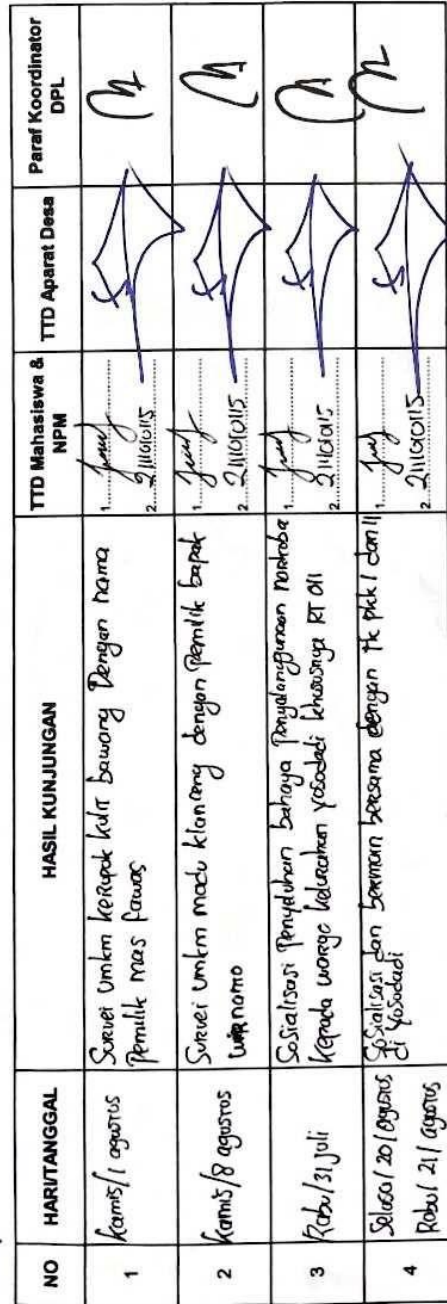 NO
HARI/TANGGAL
HASIL KUNJUNGAN
TTD Mahasiswa &
NPM
TTD Aparat Desa
Paraf Koordinator
DPL
1
Kamis/1 agustus
Survei umkm kerupuk kulit bawang Dengan nama
Pemilik mas fawas
1
2 211101015
2
Kamis/8 agustus
Survei umkm madu klanceng dengan Pemilik bapak
winarno
1
2 211101015
3
Rabu/31 juli
Sosialisasi Penyuluhan bahaya Penyalahgunaan narkoba
kepada warga kelurahan yosodadi khususnya RT 011
1
2 211101015
4
Selasa/20/agustus
Rabu/21/agustus
Sosialisasi dan bermain bersama dengan tk pkk I dan II
di yosodadi
1
2 211101015